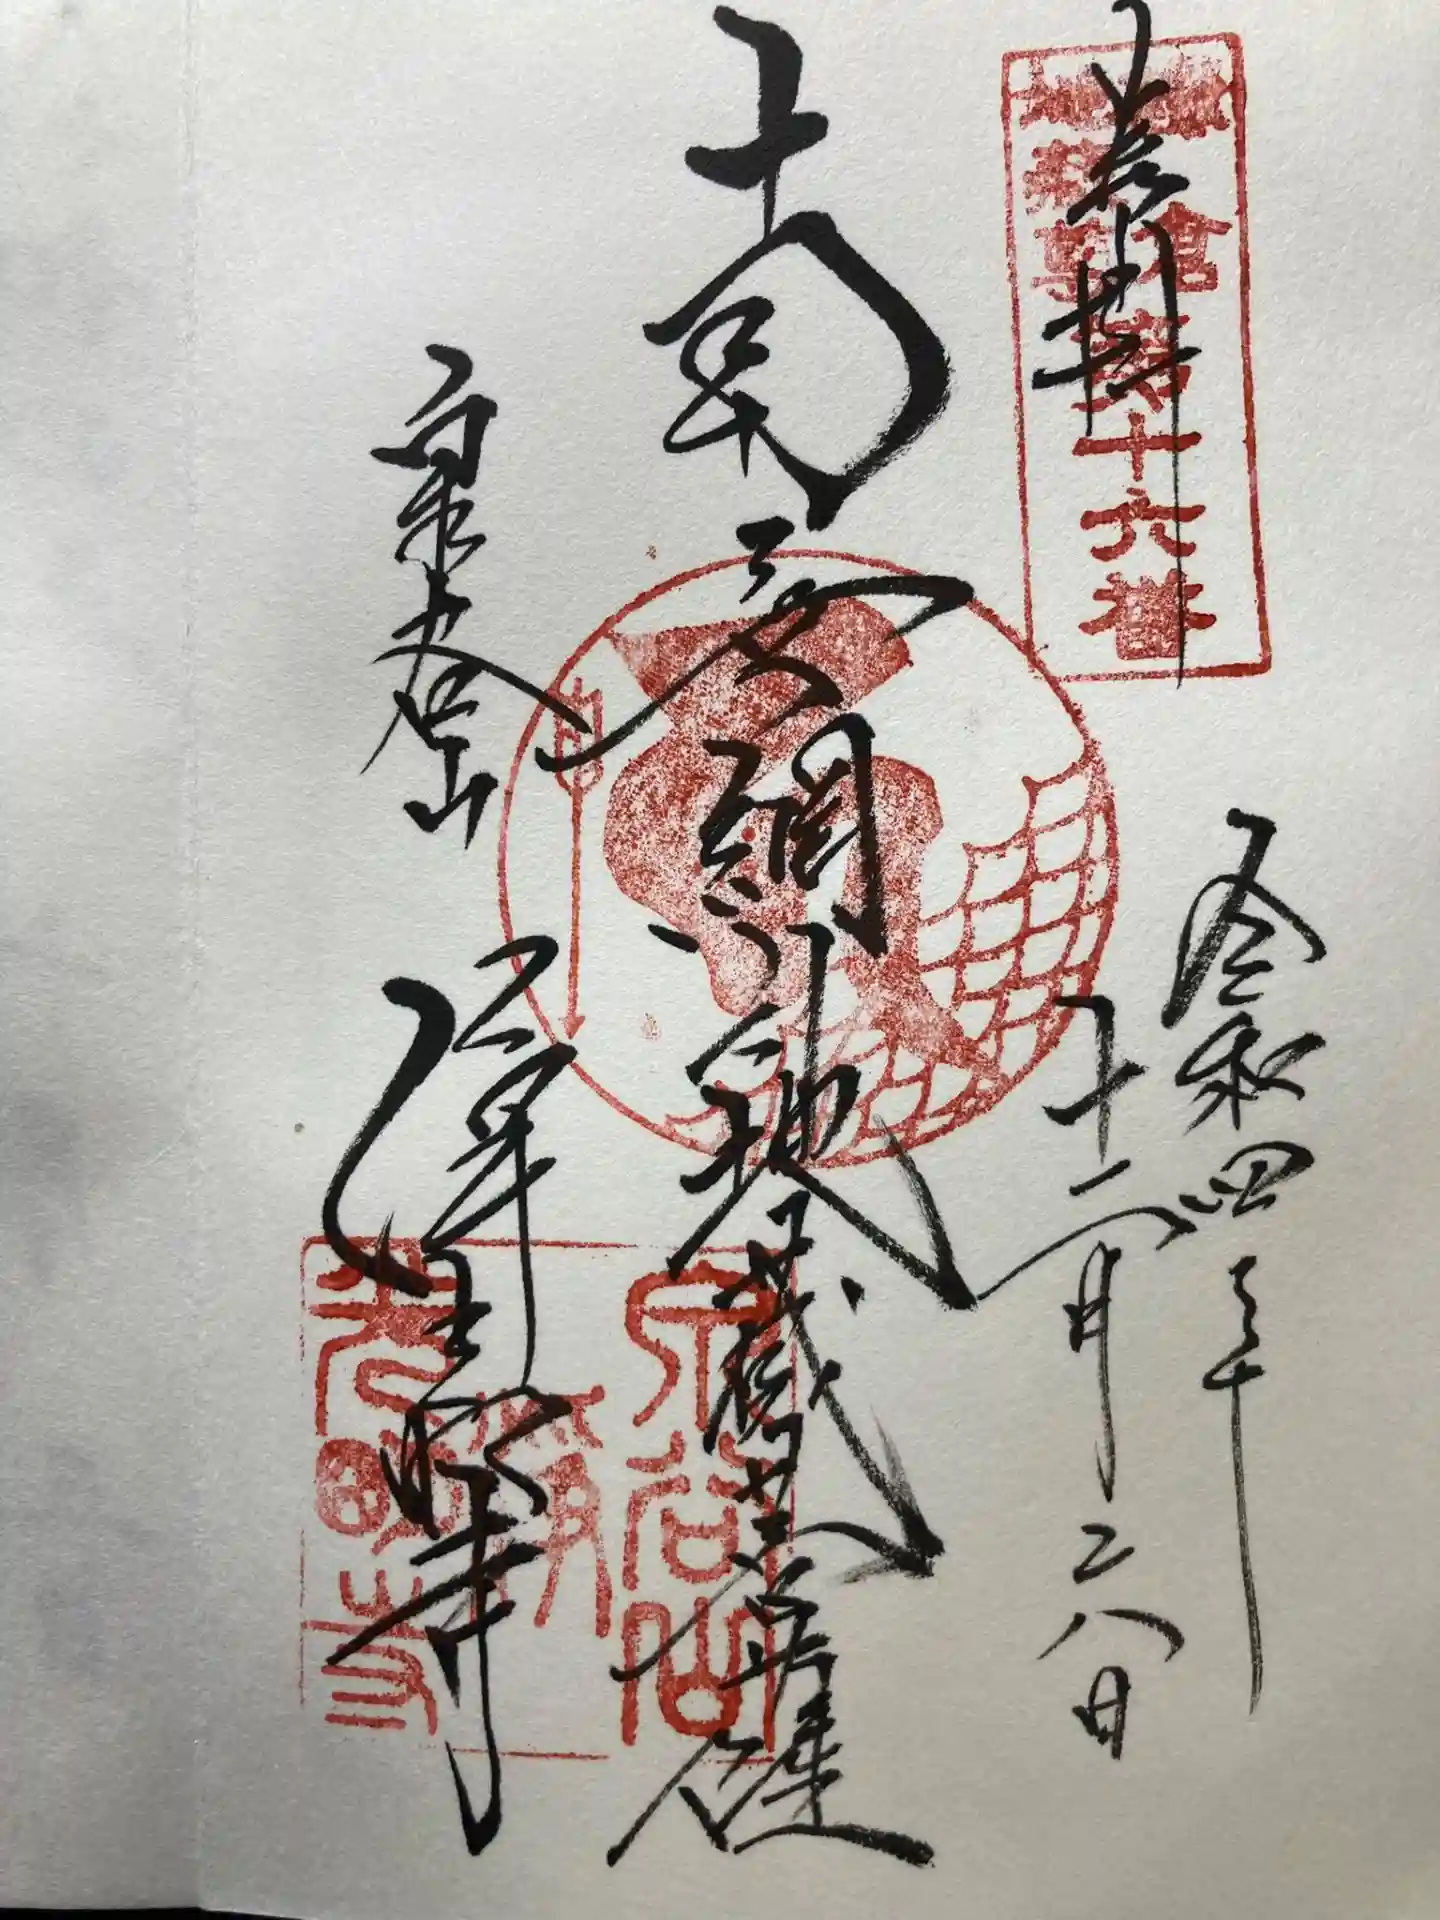 奉拝
鎌倉
地蔵尊
第十六番
令和四年
十二月二八日
南無網引地蔵菩薩
泉谷山
浄光明寺
泉谷山
浄
光明寺